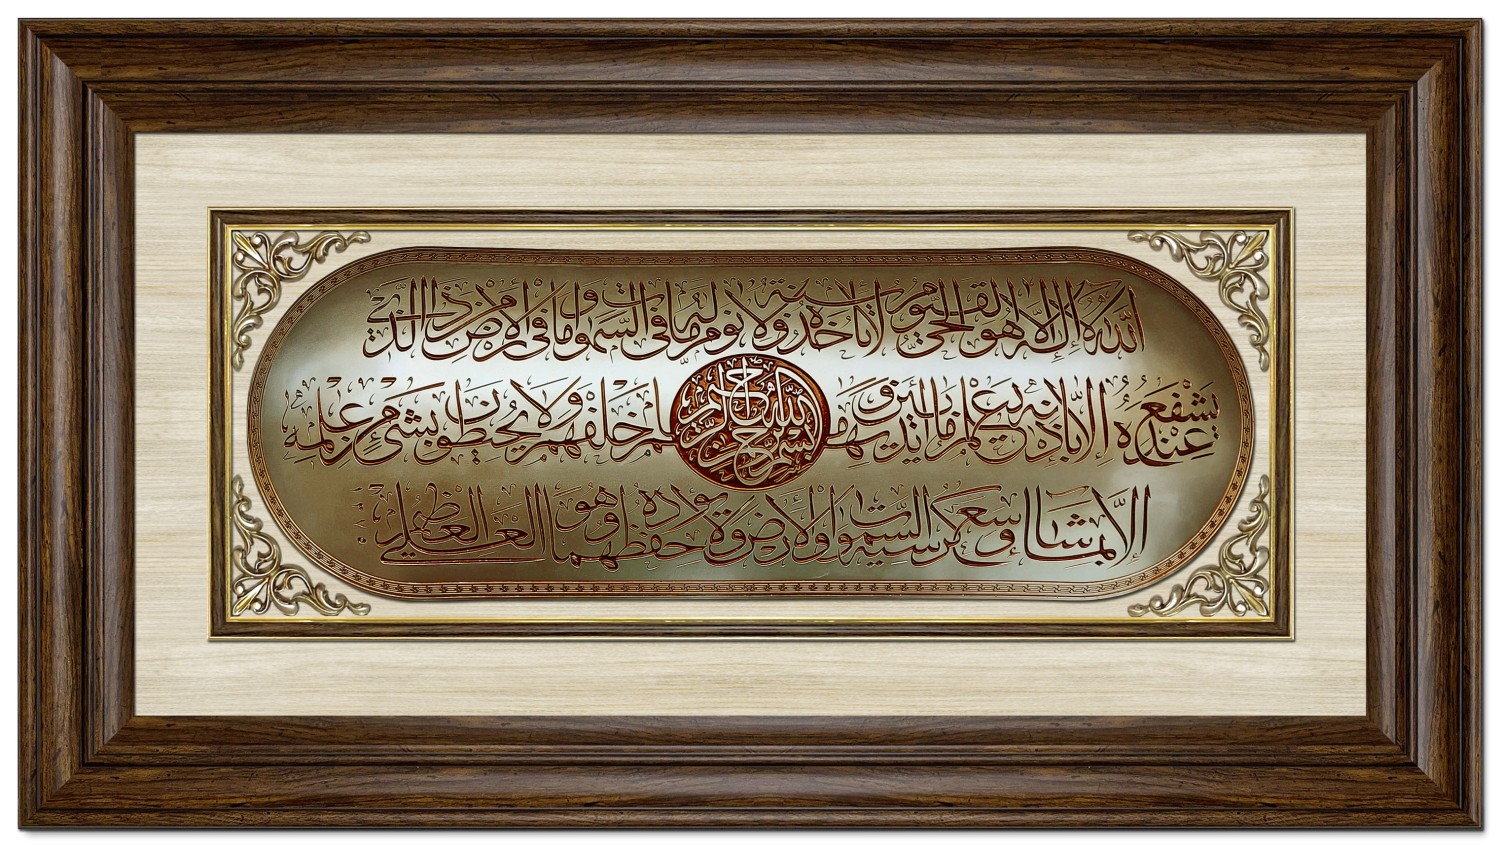 الله لا إله إلا هو الحي القيوم لا تأخذه سنة ولا نوم له ما في السموات وما في الأرض من ذا الذي
يشفع عنده إلا بإذنه يعلم ما بين أيديهم وما خلفهم ولا يحيطون بشيء من علمه
بسم الله الرحمن الرحيم
إلا بما شاء وسع كرسيه السموات والأرض ولا يؤده حفظهما وهو العلي العظيم